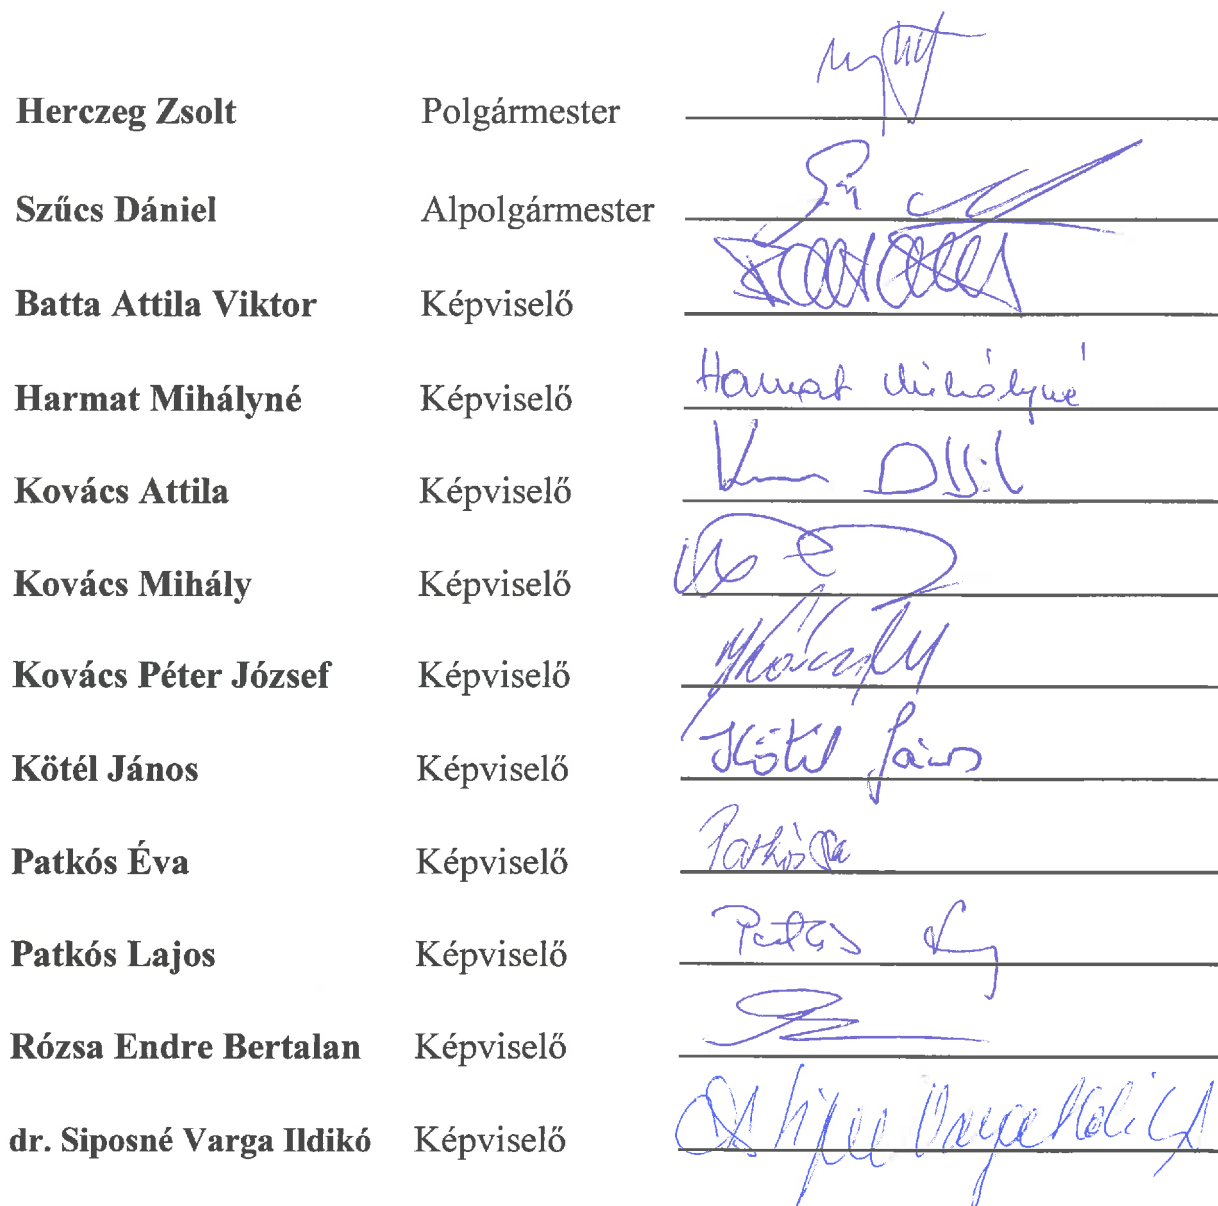 Herczeg Zsolt Polgármester
Szűcs Dániel Alpolgármester
Batta Attila Viktor Képviselő
Harmat Mihályné Képviselő Harmat Mihályné
Kovács Attila Képviselő
Kovács Mihály Képviselő
Kovács Péter József Képviselő
Kötél János Képviselő Kötél János
Patkós Éva Képviselő Patkós Éva
Patkós Lajos Képviselő Patkós
Rózsa Endre Bertalan Képviselő
dr. Siposné Varga Ildikó Képviselő